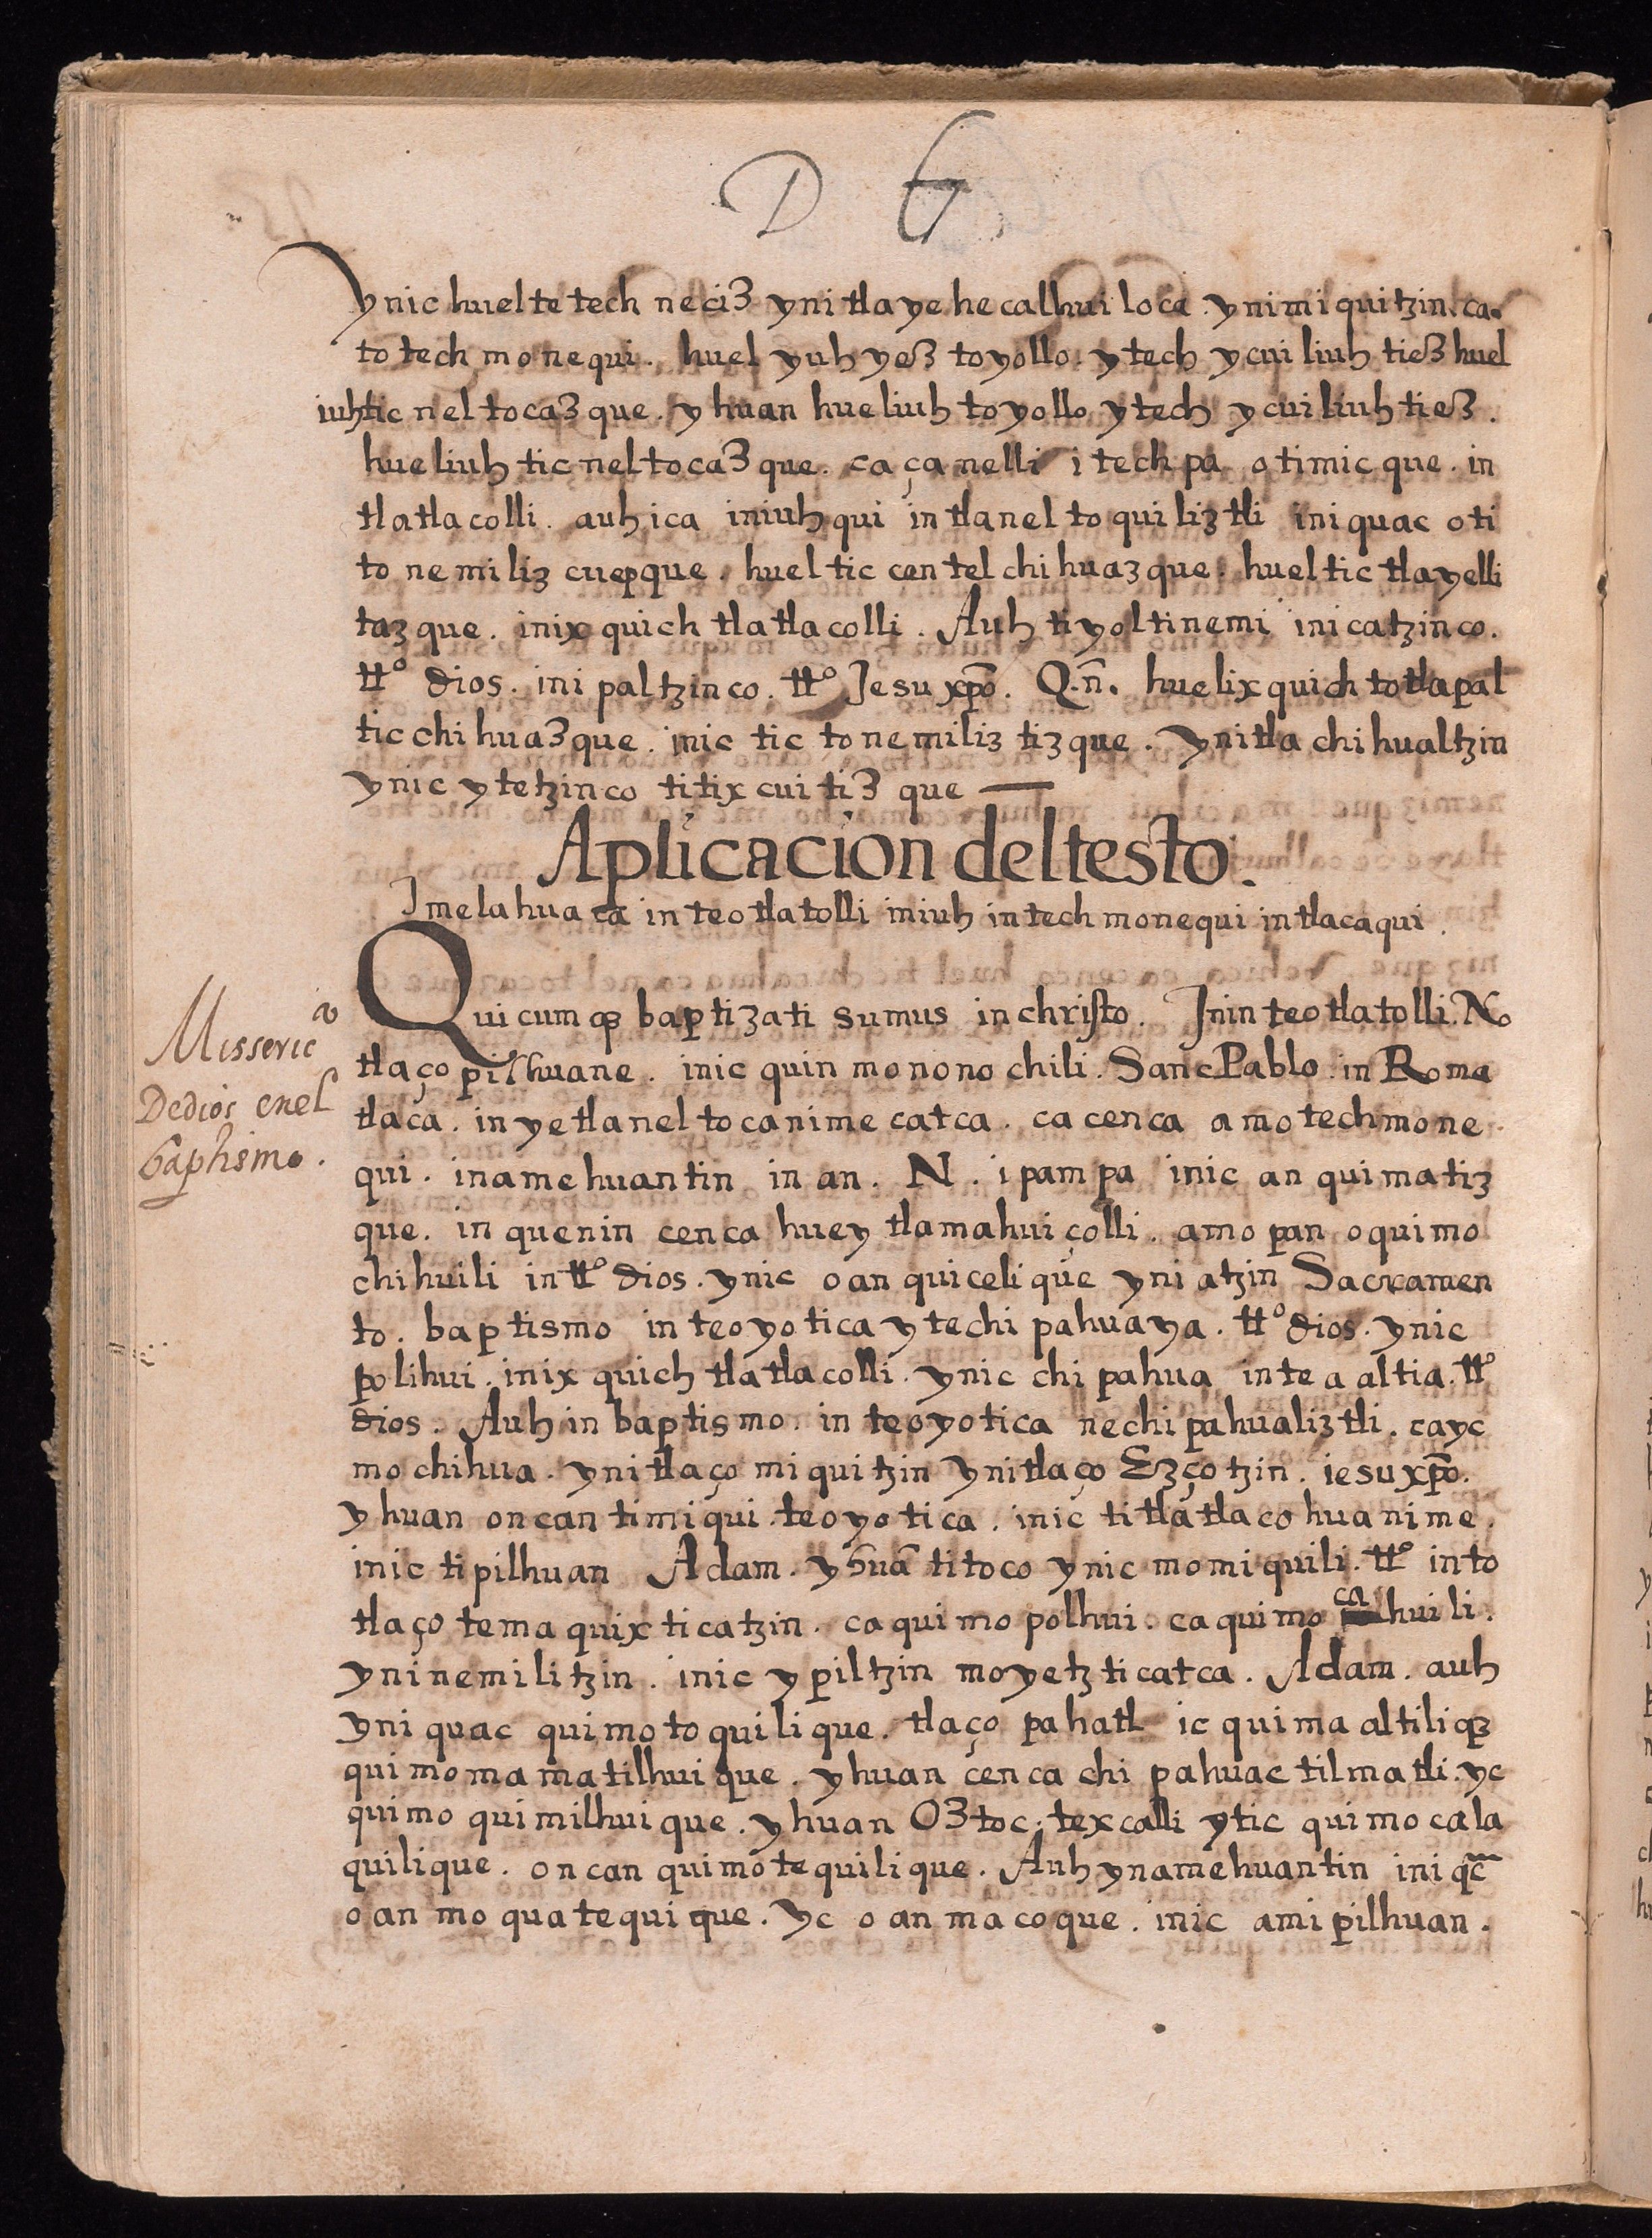 D G
ynic huel te tech neciz yni tlayehecalhuiloca. ynimiquitzin. ca.
to tech monequi. huel yuh yez toyollo. ytech ycuiliuhtiez huel
iuhtic neltocazque. yhuan hueliuh toyollo ytech ycuiliuhtiez.
hueliuh tic neltocazque. ca ça nelli itechpa otimicque. in
tlatlacolli. auh ica iniuhqui in tlaneltoquiliztli iniquac oti
tonemiliz cuepque. hueltic centelchihuazque. hueltic tlayelli
tazque. inixquich tlatlacolli. Auh tiyoltinemi inicatzinco.
ttº dios. inipaltzinco. ttº Jesu xpõ. Q.ñ. huelixquich totlapal
ticchihuazque. inic tic tonemiliztizque. ynitlachihualtzin
ynic ytetzinco titixcuitizque —
Aplicacion del testo.
Jmelahuaca in teotlatolli iniuh intech monequi intlacaqui.
Quicumqz baptizati sumus in christo. Jnin teotlatolli. No
tlaçopilhuane. inic quinmononochili. Sanc Pablo. in Roma
tlaca. in yetlaneltocanime catca. ca cenca amotechmone
qui. inamehuantin in an. N. ipampa inic anquimatiz
que. in quenin cenca huey tlamahuiçolli. amopan oquimo
chihuili in ttº dios. ynic oanquicelique yni atzin Sacramen
to. baptismo in teoyotica ytechipahuaya. ttº dios. ynic
polihui. inixquich tlatlacolli. ynic chipahua inteaaltia. ttº
dios. Auh in baptismo. in teoyotica nechipahualiztli. cayc
mochihua. ynitlaço miquitzin ynitlaço Ezçotzin. iesu xpõ.
yhuan oncan timiqui. teoyotica. inic titlatlacohuanime.
inic tipilhuan Adam. yhuã titoco ynic momiquili. ttº into
tlaço temaquixticatzin. caquimopolhui. caquimo cahuili.
yninemilitzin. inic ypiltzin moyetzticatca. Adam. auh
yniquac quimotoquilique. tlaço pahatl ic quimaaltiliqz
quimomamatilhuique. yhuan cenca chipahuac tilmatli. yc
quimoquimilhuique. yhuan Oztoc. texcalli ytic quimocala
quilique. oncan quimotequilique. Auh ynamehuantin iniqc̃
oanmoquatequique. Yc oanmacoque. inic amipilhuan.
Misseric a
De dios en el
baptismo.